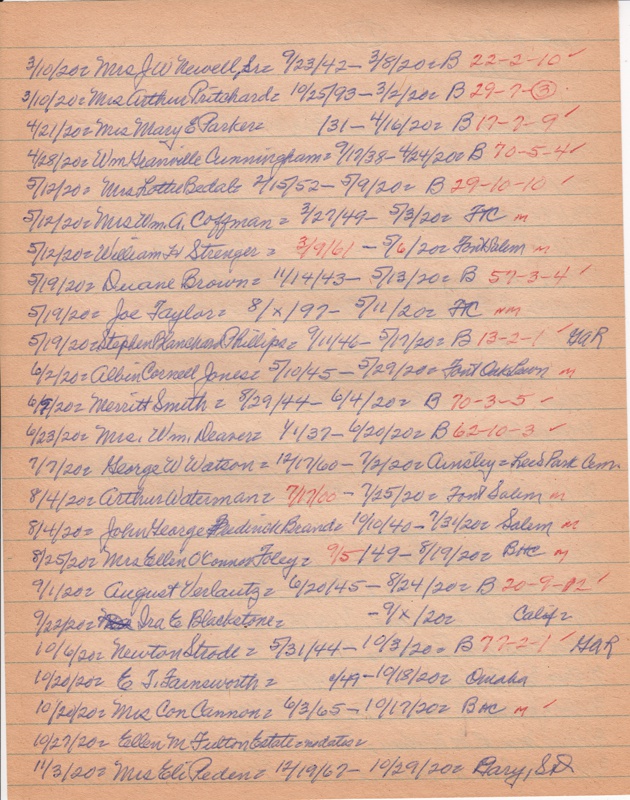 3/10/20= Mrs J.W. Newell, Sr= 9/23/42 - 3/8/20= B 22-2-10 ✓
3/10/20= Mrs Arthur Pritchard= 10/25/93 - 3/2/20= B 29-7-③
4/21/20= Mrs Mary E Parker= /31 - 4/16/20= B 17-7-9 ✓
4/28/20= Wm Granville Cunningham= 9/17/38 - 4/24/20= B 70-5-4 ✓
5/12/20= Mrs Lottie Bedal= 2/15/52 - 5/9/20= B 29-10-10 ✓
5/12/20= Mrs Wm. A. Coffman = 3/27/49 - 5/3/20= FtC m
5/12/20= William H Strenger = 3/9/61 - 5/6/20= Font Salem m
5/19/20= Duane Brown= 11/14/43 - 5/13/20= B 57-3-4 ✓
5/19/20= Joe Taylor= 8/x/97 - 5/11/20= FtC nm
5/19/20= Stephen Blanchard Phillips= 9/11/46 - 5/17/20= B 13-2-1 ✓ GAR
6/2/20= Albin Cornell Jones= 5/10/45 - 5/29/20= Font Oak Lawn m
6/9/20= Merritt Smith = 8/29/44 - 6/4/20= B 70-3-5 ✓
6/23/20= Mrs. Wm. Deaver= 4/1/37 - 6/20/20= B 62-10-3 ✓
7/7/20= George W Watson= 12/17/60 - 7/2/20= Ainsley= Lee's Park Cem
8/4/20= Arthur Waterman= 7/17/00 - 7/25/20= Font Salem m
8/4/20= John George Fredrick Brand= 10/10/40 - 7/31/20= Salem m
8/25/20= Mrs Ellen O'Connor Foley= 9/5/49 - 8/19/20= BHC m
9/1/20= August Verlautz= 6/20/45 - 8/24/20= B 20-9-12 ✓
9/22/20= Ira E Blackstone= - 9/x/20= Calif=
10/6/20= Newton Strode= 5/31/44 - 10/3/20= B 77-2-1 ✓ GAR
10/20/20= E T. Farnsworth= /49 - 10/18/20= Omaha
10/20/20= Mrs Con Cannon= 6/3/65 - 10/17/20= BHC m ✓
10/27/20= Ellen M Fulton Estate= no dates=
11/3/20= Mrs Eli Peden= 12/19/67 - 10/29/20= Gary, SD